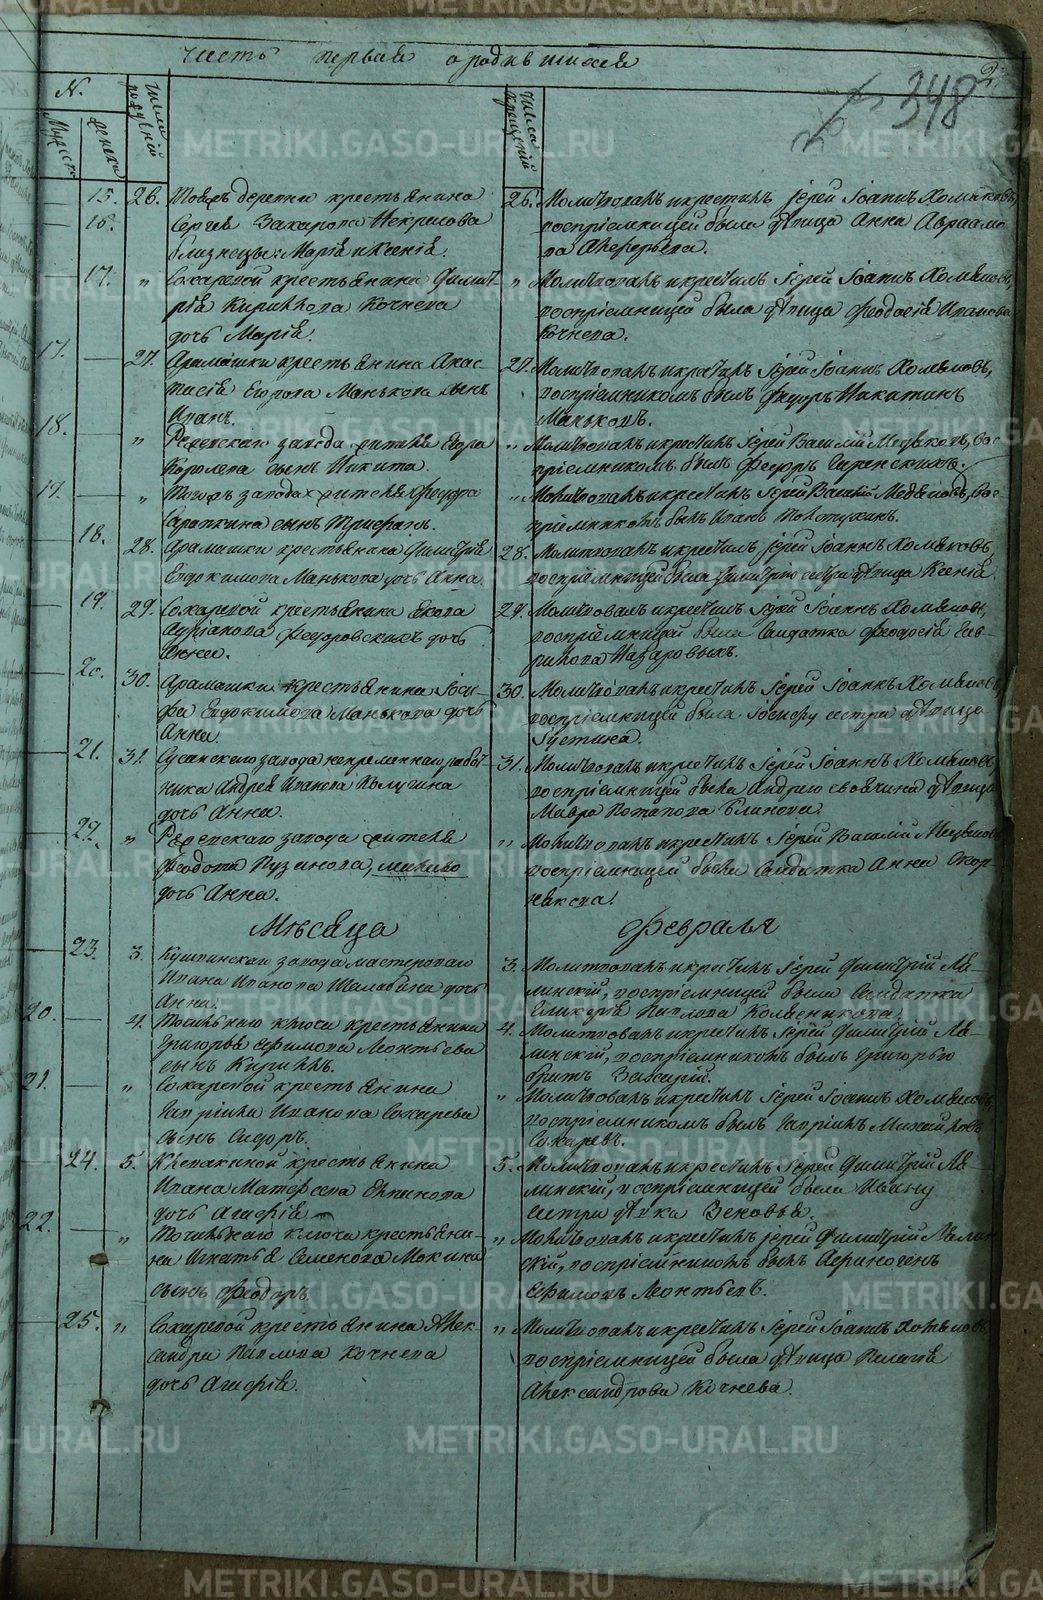 часть первая о родившихся
348
N.
Мужеска
женска
числа рождений
числа крещений
15. 26. Тояжъ деревни крестьянина
16. Сергея Захарова Некрасова
близнецы: Марія и Ксенія.
26. Молитвовалъ и крестилъ Іерей Іоаннъ Хомяковъ,
воспріемницей была дѣвица Анна Авраамо
ва Алферьева.
17. " Сохаревой крестьянина Димит
рія Кирилова Кочнева
дочь Марія.
" Молитвовалъ и крестилъ Іерей Іоаннъ Хомяковъ,
воспріемницей была дѣвица Феодосія Иванова
Кочнева.
17. 27. Арамашки крестьянина Анас
тасія Егорова Манькова сынъ
Иванъ.
27. Молитвовалъ и крестилъ Іерей Іоаннъ Хомяковъ,
воспріемникомъ былъ Федоръ Никитинъ
Маньковъ.
18. " Режевскаго завода жителя Егора
Королева сынъ Никита.
" Молитвовалъ и крестилъ Іерей Василій Медведевъ, вос
пріемникомъ былъ Федоръ Ширенскихъ.
19. " Тогожъ завода жителя Федора
Сапкина сынъ Трифанъ.
" Молитвовалъ и крестилъ Іерей Василій Медведевъ, вос
пріемникомъ былъ Иванъ Толстухинъ.
18. 28. Арамашки крестьянина Димитрія
Евдокимова Манькова дочь Анна.
28. Молитвовалъ и крестилъ Іерей Іоаннъ Хомяковъ,
воспріемницей была Димитрію сестра дѣвица Ксенія.
19. 29. Сохаревой крестьянина Якова
Адріанова Федоровскихъ дочь
Анна.
29. Молитвовалъ и крестилъ Іерей Іоаннъ Хомяковъ,
воспріемницей была Салдатка Феодосія Гав
рилова Назаровыхъ.
20. 30. Арамашки крестьянина Іоси
фа Евдокимова Манькова дочь
Анна.
30. Молитвовалъ и крестилъ Іерей Іоаннъ Хомяковъ,
воспріемницей была Іосифу сестра дѣвица
Густина.
21. 31. Сусанскаго завода непременнаго работ
ника Андрея Иванова Полухина
дочь Анна.
31. Молитвовалъ и крестилъ Іерей Іоаннъ Хомяковъ,
воспріемницей была Андрею своячина дѣвица
Мавра Потапова Блинова.
22. " Режевскаго завода жителя
Федота Пузанова,
дочь Анна.
" Молитвовалъ и крестилъ Іерей Василій Медведевъ
воспріемницей была Салдатка Анна Окор
някова.
Мѣсяца Февраля
23. 3. Кушвинскаго завода мастероваго
Ивана Иванова Шалабина дочь
Анна.
3. Молитвовалъ и крестилъ Іерей Димитрій Ля
линскій, воспріемницей была Салдатка
Гликерія Павлова Колесникова.
20. 4. Точильнаго ключа крестьянина
Григорья Ефимова Леонтьева
сынъ Кирилъ.
4. Молитвовалъ и крестилъ Іерей Димитрій Ля
линскій, воспріемникомъ былъ Григорью
братъ Захарій.
21. " Сохаревой крестьянина
Гаврила Иванова Сохарева
сынъ Сидоръ.
" Молитвовалъ и крестилъ Іерей Іоаннъ Хомяковъ,
воспріемникомъ былъ Гаврилъ Михайловъ
Сохаревъ.
24. 5. Клевакиной крестьянина
Ивана Матфеева
дочь Агафія.
5. Молитвовалъ и крестилъ Іерей Димитрій Ля
линскій, воспріемницей была Ивану
сестра дѣвка Зеновья.
22. " Точильнаго ключа крестьяни
на Игнатья Семенова Мокина
сынъ Феодоръ.
" Молитвовалъ и крестилъ Іерей Димитрій Лялин
скій, воспріемникомъ былъ Афиногенъ
Ефимовъ Леонтьевъ.
25. " Сохаревой крестьянина Алек
сандра Павлова Кочнева
дочь Агафія.
" Молитвовалъ и крестилъ Іерей Іоаннъ Хомяковъ
воспріемницей была дѣвица Пелагія
Александрова Кочнева.
METRIKI.GASO-URAL.RU